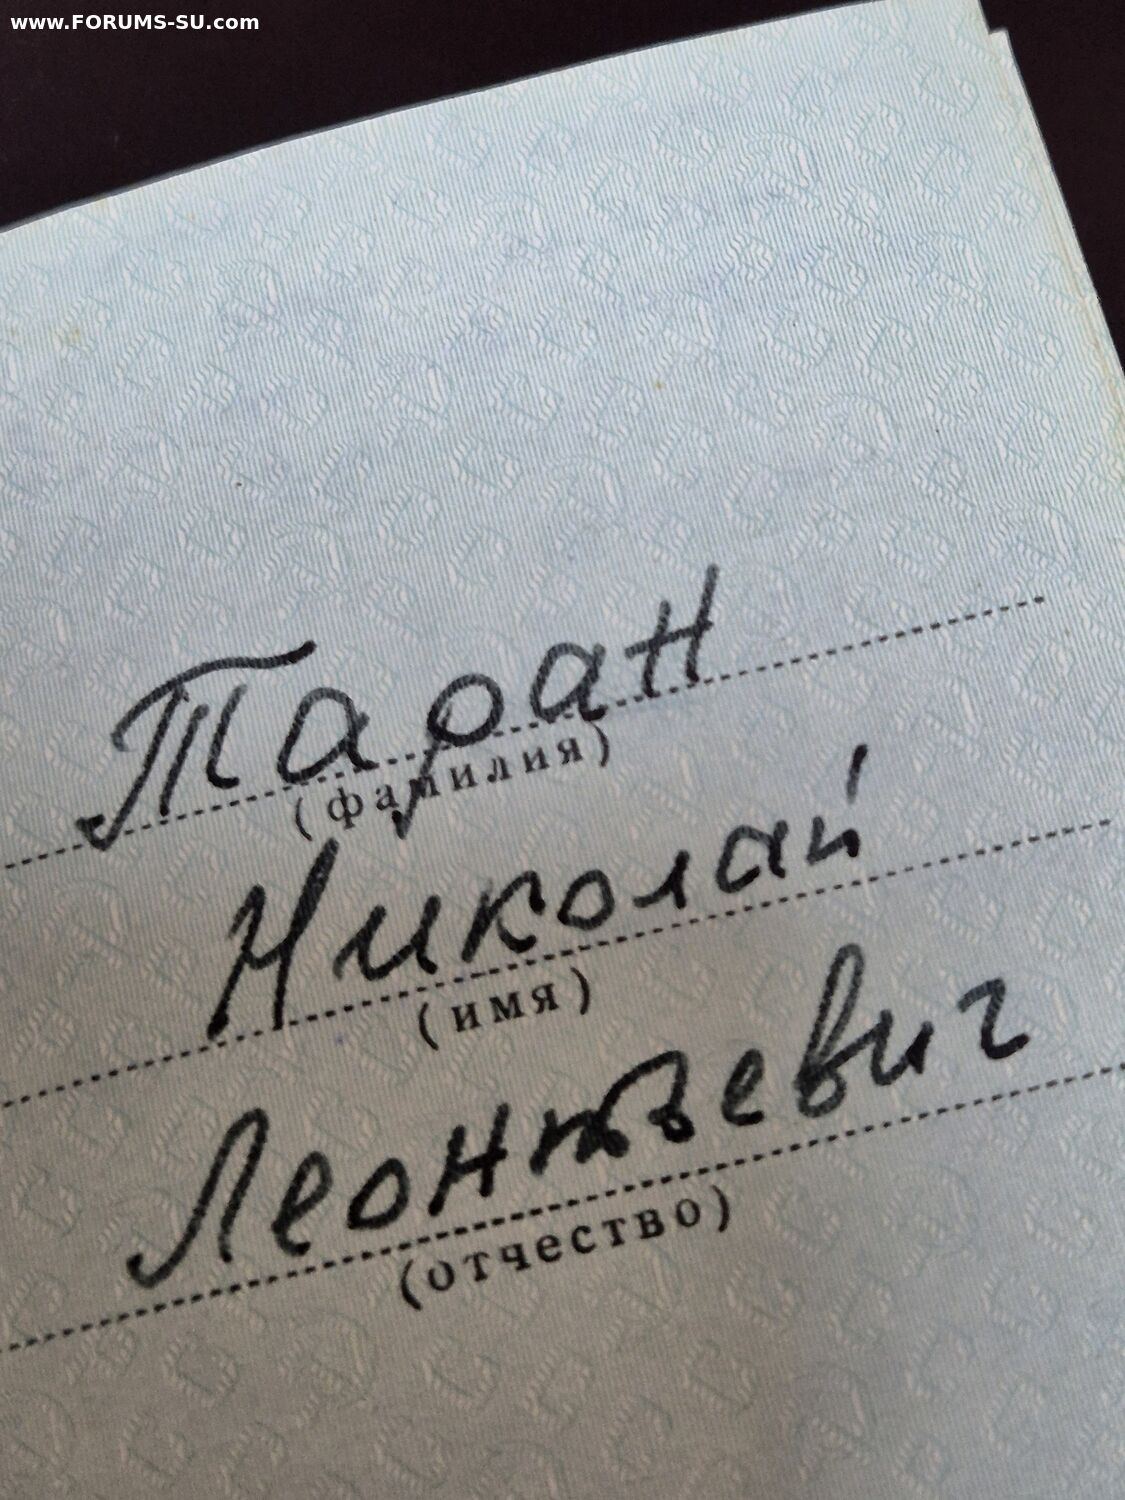 www.FORUMS-SU.com
Таран
(фамилия)
Николай
(имя)
Леонтьевич
(отчество)